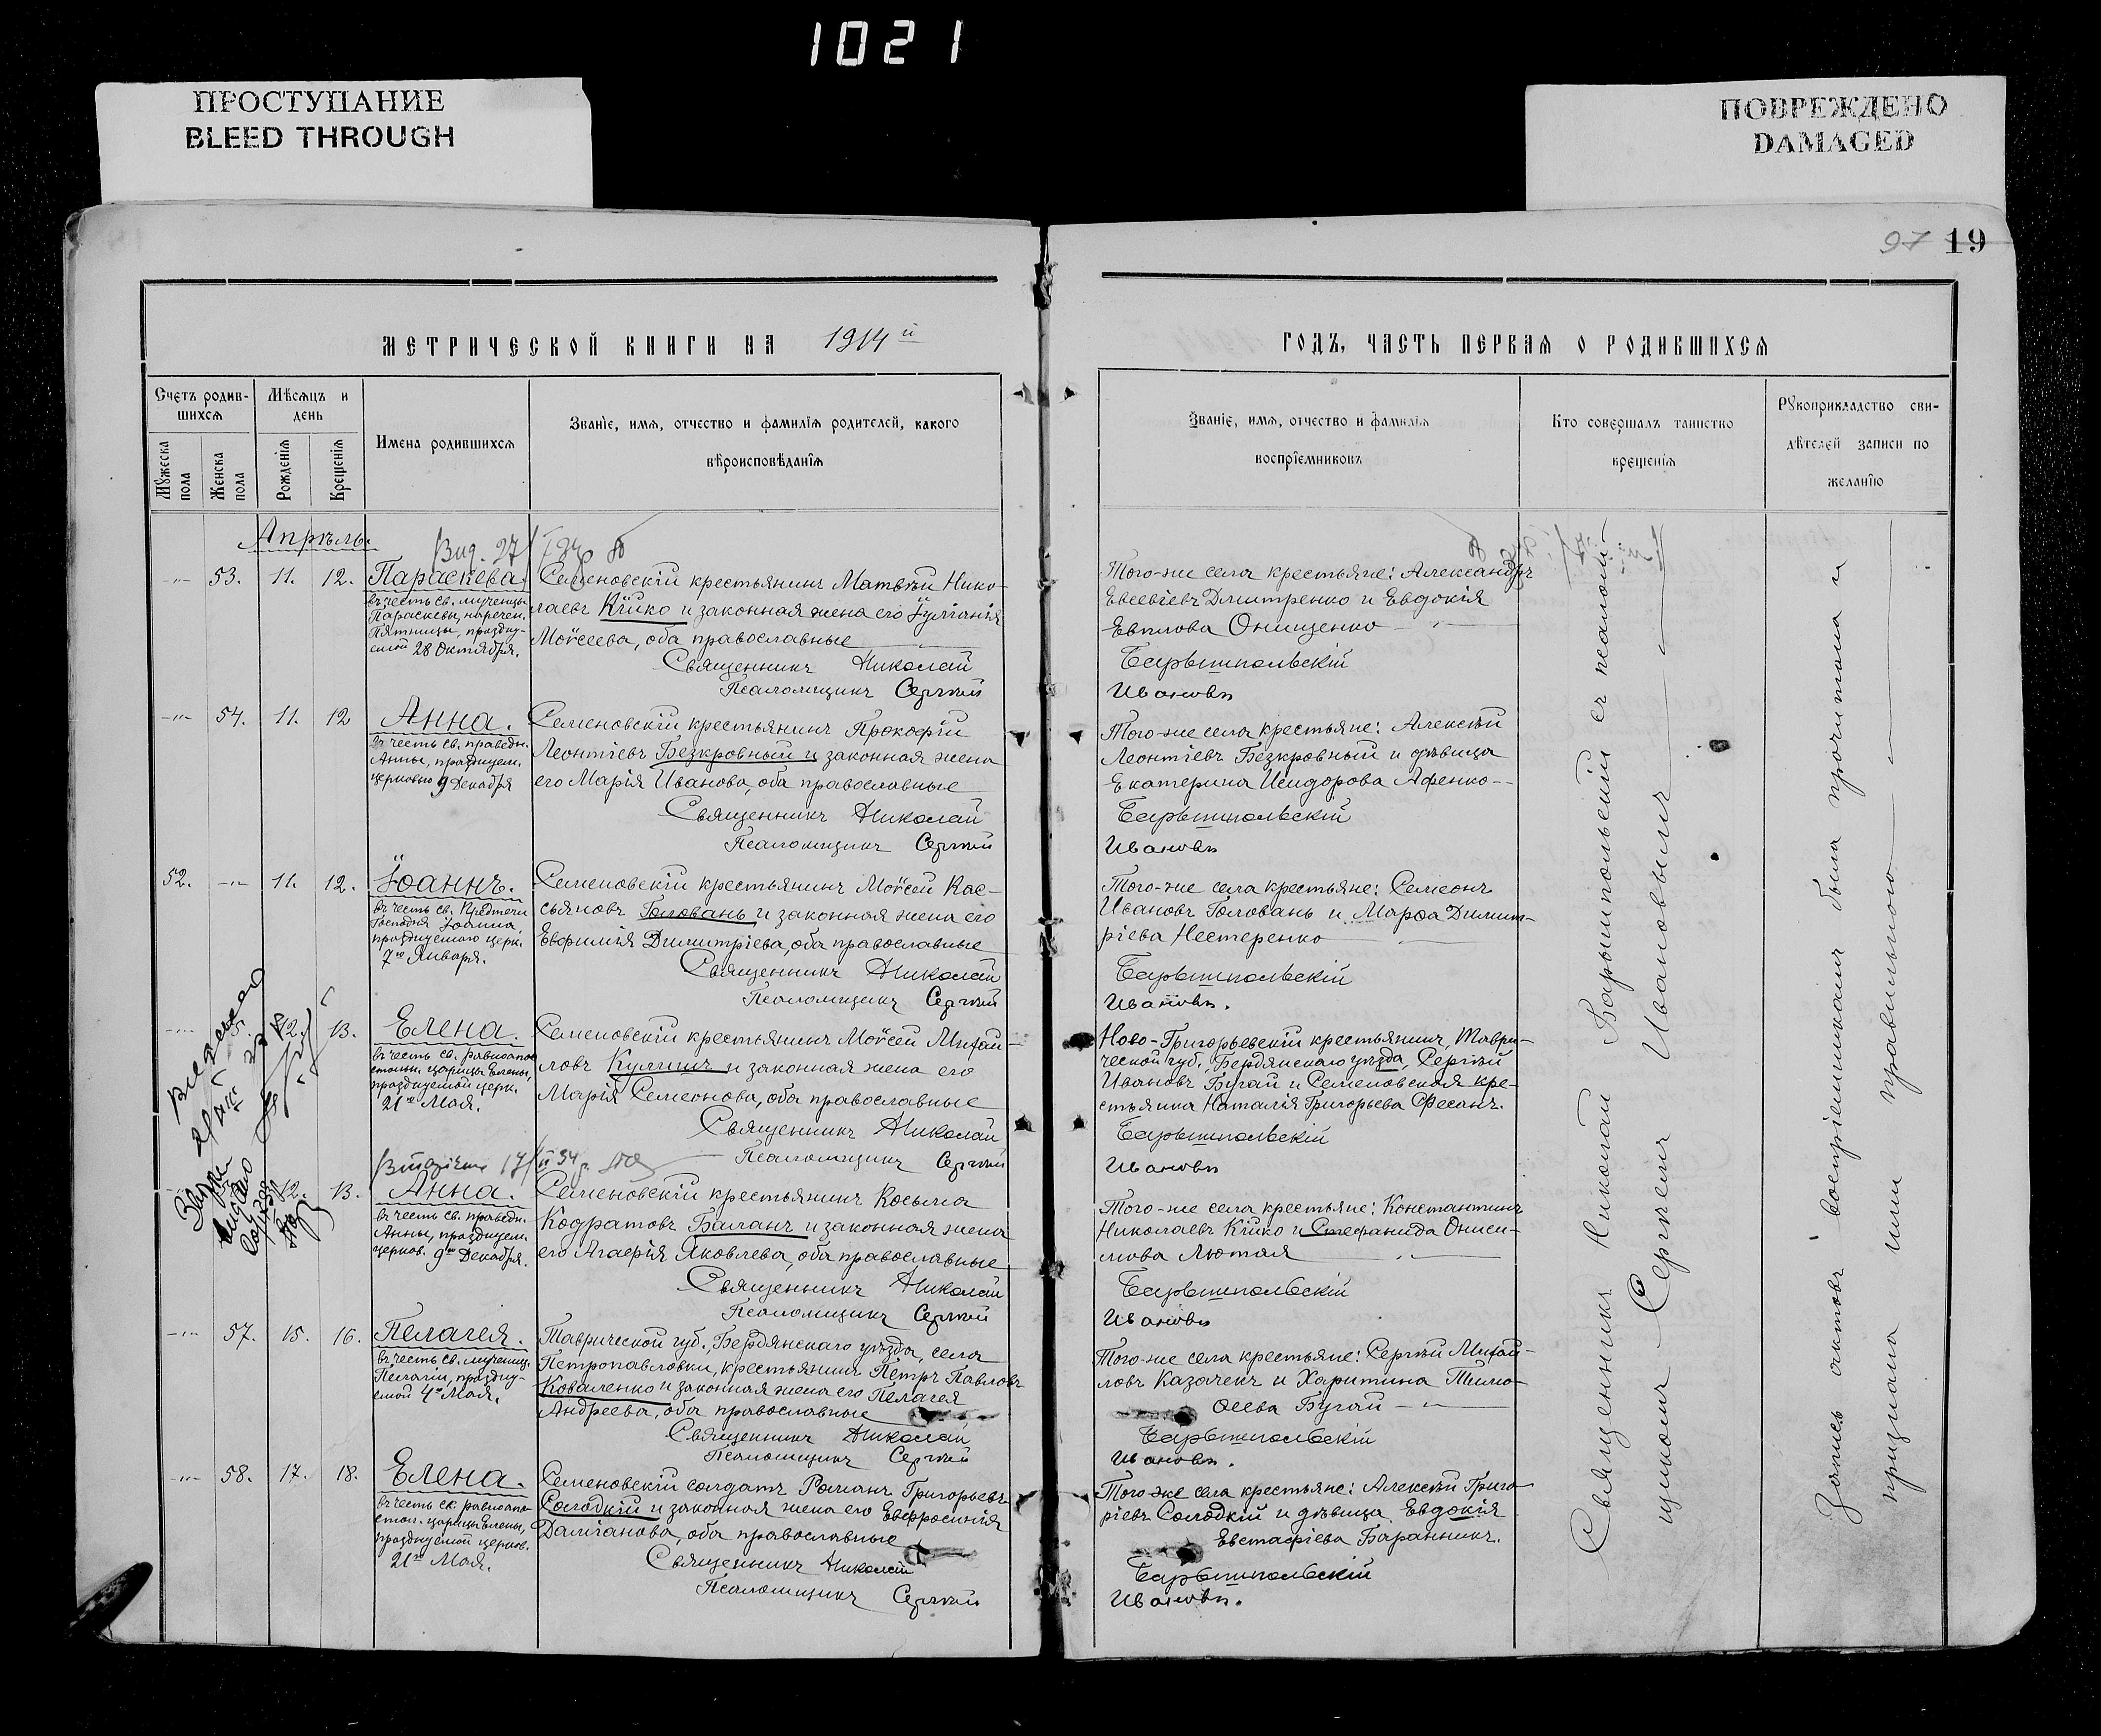 1021
ПРОСТУПАНИЕ
BLEED THROUGH
ПОВРЕЖДЕНО
DAMAGED
97 19
МЕТРИЧЕСКОЙ КНИГИ НА 1914й
ГОДЪ, ЧАСТЬ ПЕРВАЯ О РОДИВШИХСЯ
Счетъ родив-
шихся
Мѣсяцъ и
день
Мужеска
пола
Женска
пола
Рожденія
Крещенія
Имена родившихся
Званіе, имя, отчество и фамилія родителей, какого
вѣроисповѣданія
Званіе, имя, отчество и фамилія
воспріемниковъ
Кто совершалъ таинство
крещенія
Рукоприкладство сви-
дѣтелей записи по
желанію
Апрѣль.
53. 11. 12. Параскева.
въ честь св. мученицы
Параскевы, наречен.
Пятницы, праздну-
емой 28 Октября.
Семеновскій крестьянинъ Матвѣй Нико-
лаевъ Кійко и законная жена его Іуліанія
Моѵсеева, оба православные
Священникъ Николай
Псаломщикъ Сергѣй
Того-же села крестьяне: Александръ
Евсевіевъ Дмитренко и Евдокія
Евплова Онищенко
Барышпольскій
Ивановъ
54. 11. 12 Анна.
въ честь св. праведн.
Анны, празднуем.
церковью 9 Декабря
Семеновскій крестьянинъ Прокофій
Леонтіевъ Безкровный и законная жена
его Марія Иванова, оба православные
Священникъ Николай
Псаломщикъ Сергѣй
Того-же села крестьяне: Алексѣй
Леонтіевъ Безкровный и дѣвица
Екатерина Исидорова Афенко--
Барышпольскій
Ивановъ
52. 11. 12. Іоаннъ.
въ честь св. Предтечи
Господня Іоанна,
празднуемаго церк.
7го Января.
Семеновскій крестьянинъ Моѵсей Кас-
сьяновъ Головань и законная жена его
Евфимія Димитріева, оба православные
Священникъ Николай
Псаломщикъ Сергѣй
Того-же села крестьяне: Симеонъ
Ивановъ Головань и Марфа Димит-
ріева Нестеренко
Барышпольскій
Ивановъ.
12. 13. Елена.
въ честь св. равноапо-
стольн. царицы Елены,
празднуемой церк.
21го Мая.
Семеновскій крестьянинъ Моѵсей Михай-
ловъ Кулишъ и законная жена его
Марія Семеонова, оба православные
Священникъ Николай
Псаломщикъ Сергѣй
Ново-Григорьевскій крестьянинъ, Таври-
ческой губ., Бердянскаго уѣзда, Сергѣй
Ивановъ Бугай и Семеновская кре-
стьянка Наталія Григорьева Фесанъ.
Барышпольскій
Ивановъ
12. 13. Анна.
въ честь св. праведн.
Анны, празднуем.
церков. 9го Декабря.
Семеновскій крестьянинъ Косьма
Кодратовъ Баланъ и законная жена
его Агафія Яковлева, оба православные
Священникъ Николай
Псаломщикъ Сергѣй
Того-же села крестьяне: Константинъ
Николаевъ Кійко и Стефанида Ониси-
мова Лютая
Барышпольскій
Ивановъ
57. 15. 16. Пелагея.
въ честь св. мучениц.
Пелагіи, праздну-
емой 4го Мая.
Таврической губ., Бердянскаго уѣзда, села
Петропавловки, крестьянинъ Петръ Павловъ
Коваленко и законная жена его Пелагея
Андреева, оба православные
Священникъ Николай
Псаломщикъ Сергѣй
Того-же села крестьяне: Сергѣй Михай-
ловъ Казачекъ и Харитина Тимо-
ѳеева Бугай
Барышпольскій
Ивановъ.
58. 17. 18. Елена.
въ честь св. равноапо-
стол. царицы Елены,
празднуемой церков.
21го Мая.
Семеновскій солдатъ Романъ Григорьевъ
Солодкій и законная жена его Евфросинія
Даміанова, оба православные
Священникъ Николай
Псаломщикъ Сергѣй
Того же села крестьяне: Алексѣй Григо-
ріевъ Солодкій и дѣвица Евдокія
Евстафіева Баранникъ.
Барышпольскій
Ивановъ.
Священникъ Николай Барышпольскій съ псалом-
щикомъ Сергѣемъ Ивановымъ
Запись актовъ воспріемниками была прочитана и
признана ими правильною